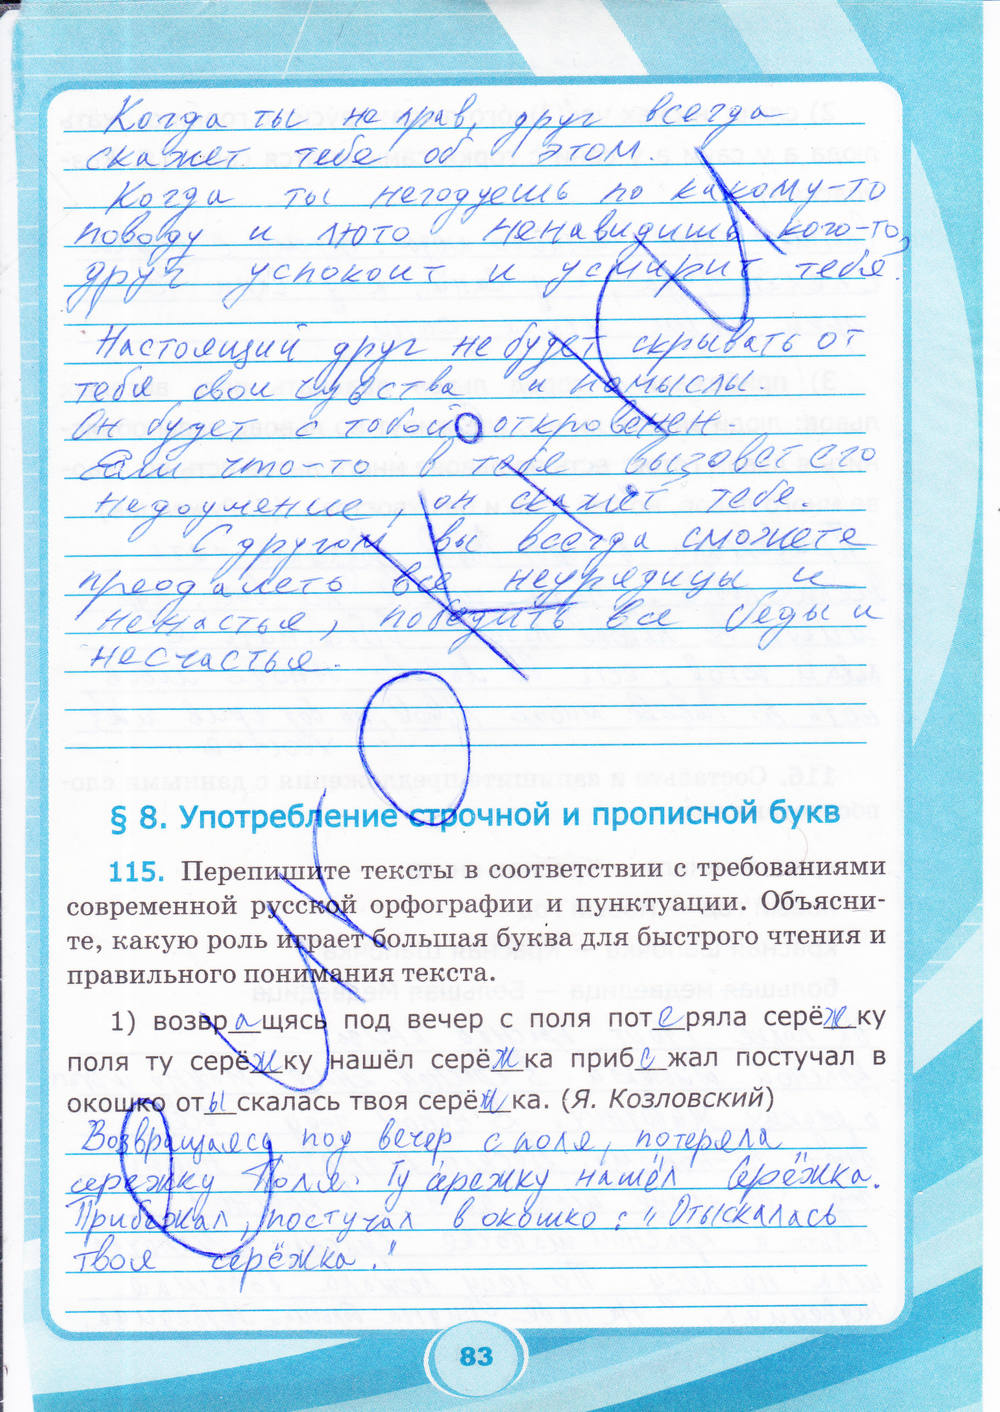 Когда ты не прав, друг всегда
скажет тебе об этом.
Когда ты негодуешь по какому-то
поводу и люто ненавидишь кого-то,
друг успокоит и усмирит тебя.
Настоящий друг не будет скрывать от
тебя свои чувства и помыслы.
Он будет с тобой откровенен
Если что-то в тебе вызовет его
недоумение, он скажет тебе.
С другом вы всегда сможете
преодалеть все неурядицы и
ненастья, победить все беды и
несчастья.
§ 8. Употребление строчной и прописной букв
115. Перепишите тексты в соответствии с требованиями
современной русской орфографии и пунктуации. Объясни-
те, какую роль играет большая буква для быстрого чтения и
правильного понимания текста.
1) возвр а щясь под вечер с поля пот е ряла серё ж ку
поля ту серё ж ку нашёл серё ж ка приб е жал постучал в
окошко от ы скалась твоя серё ж ка. (Я. Козловский)
Возвращаясь под вечер с поля, потеряла
сережку Поля. Ту сережку нашёл Серёжка.
Прибежал, постучал в окошко: "Отыскалась
твоя серёжка."
83